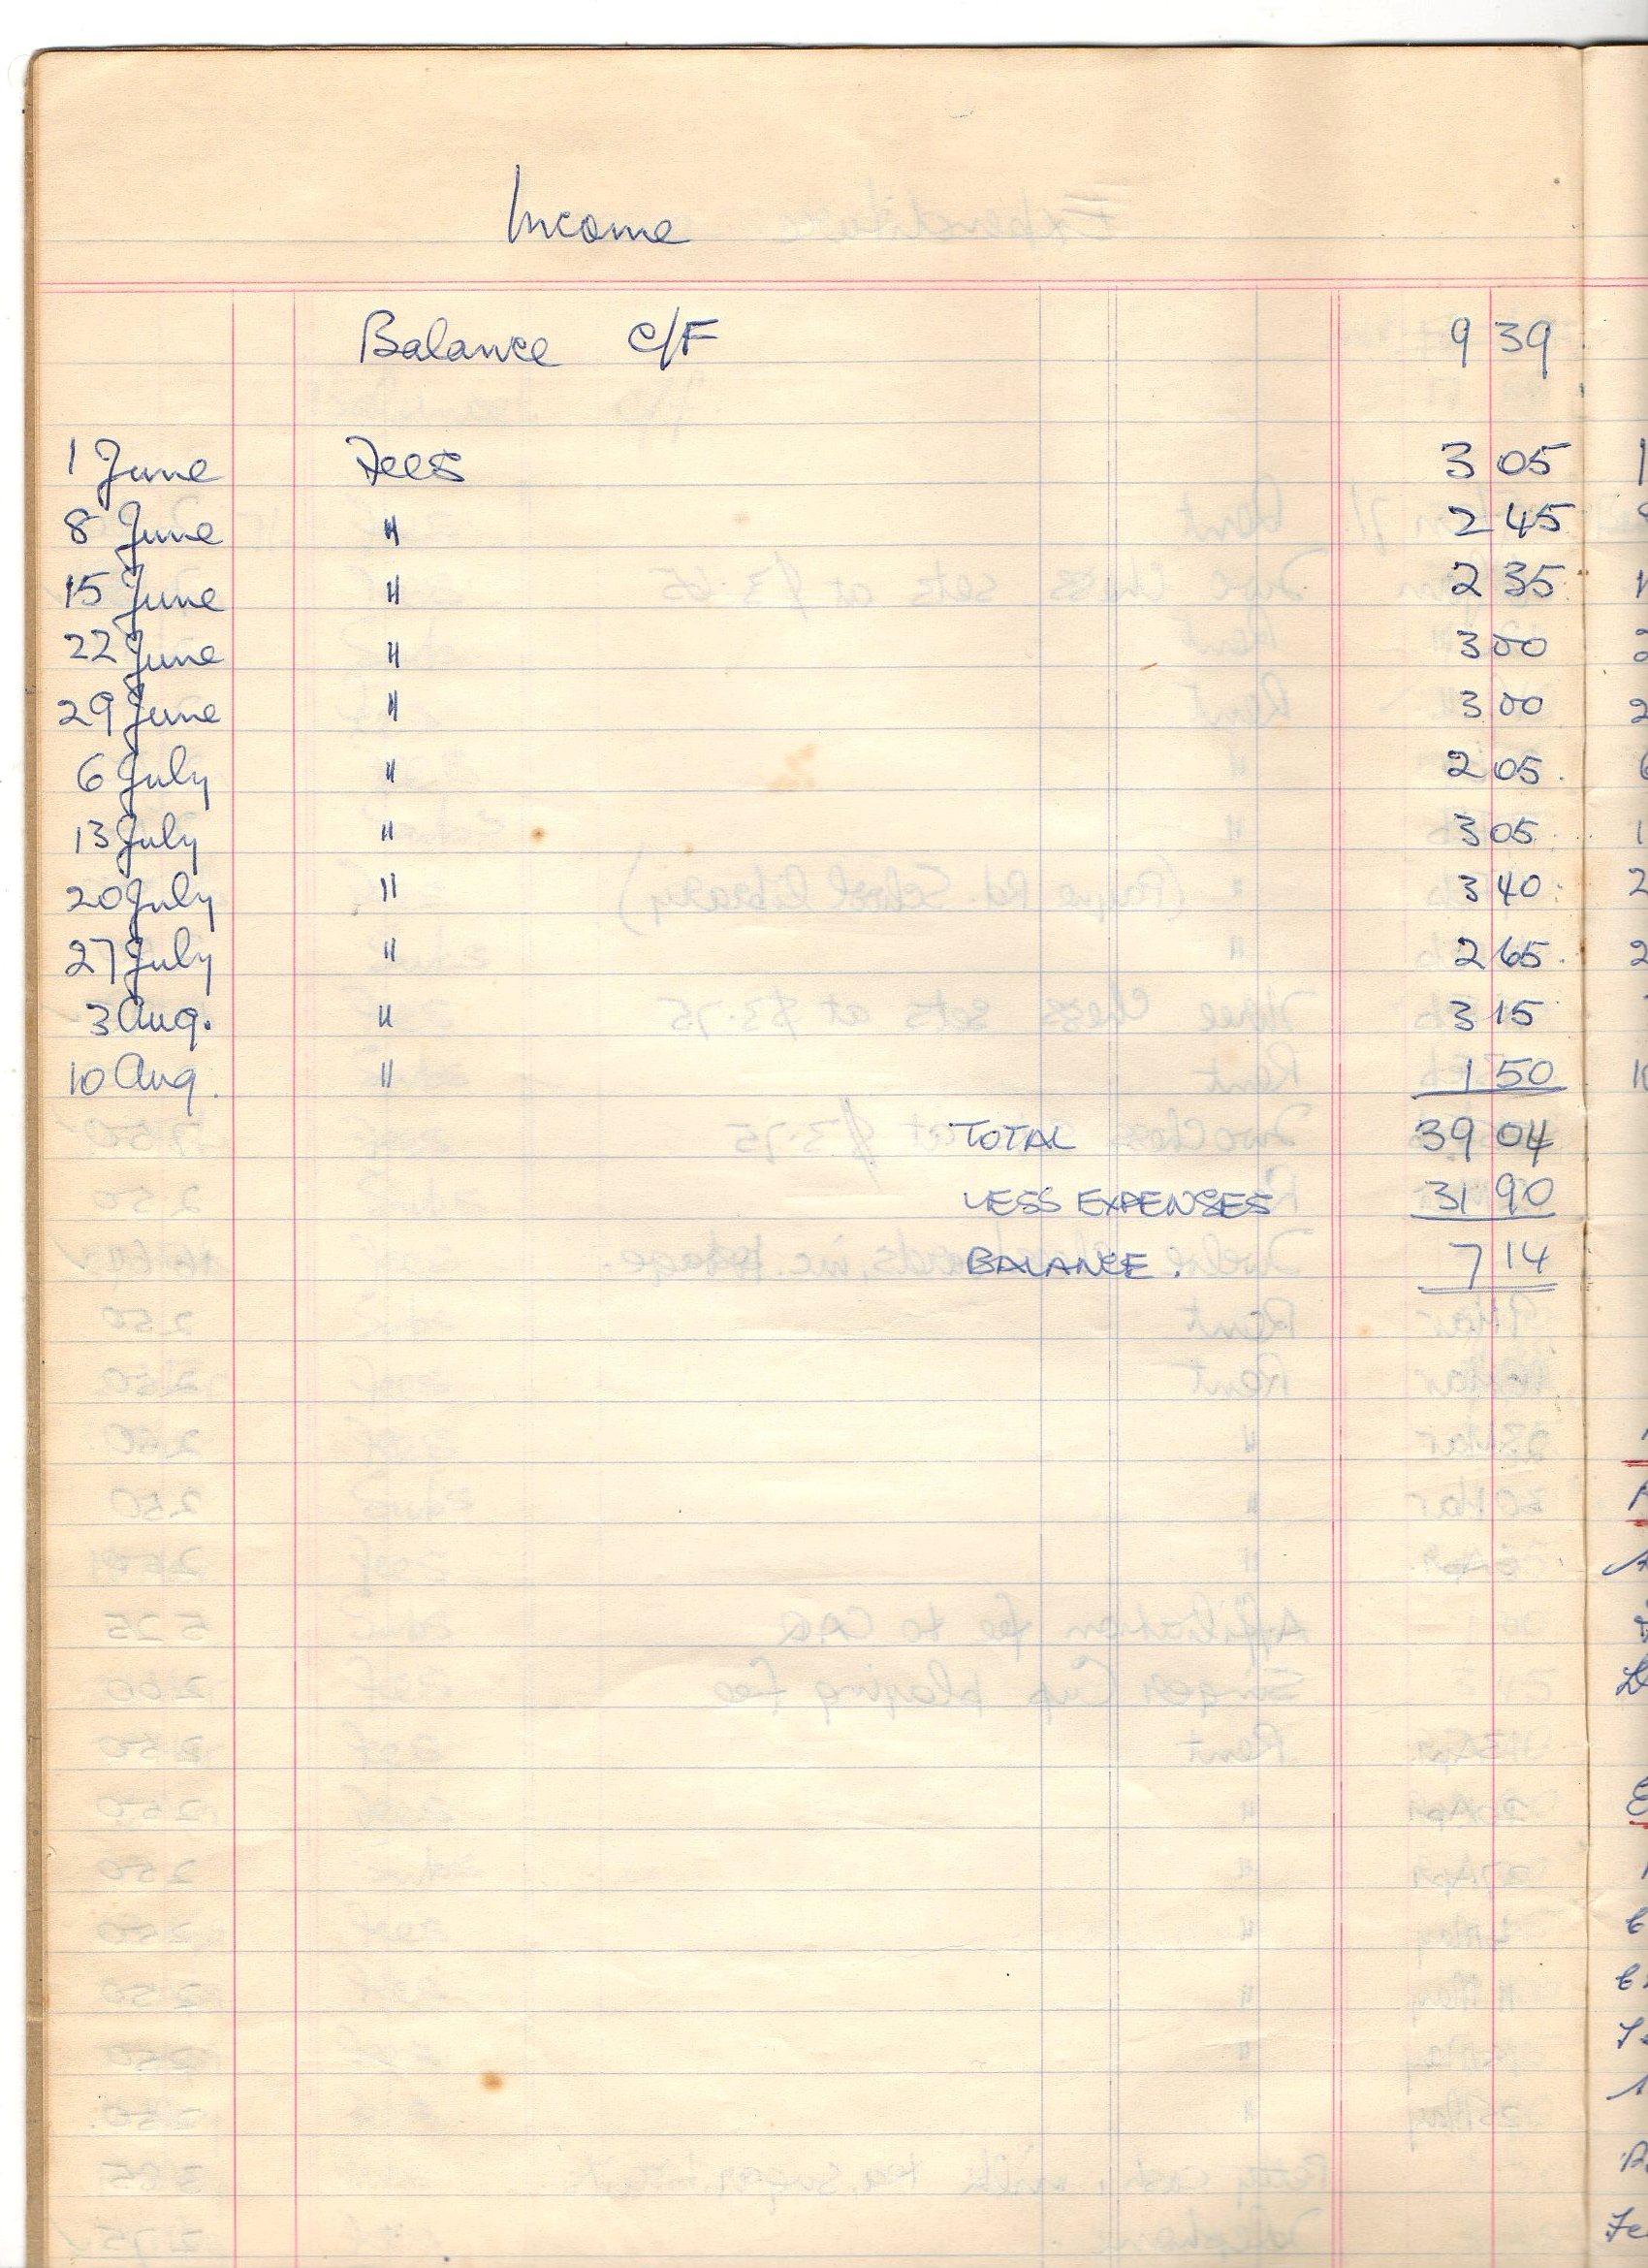 Income
Balance C/F 9 39
1 June Fees 3 05
8 June " 2 45
15 June " 2 35
22 June " 3 00
29 June " 3 00
6 July " 2 05
13 July " 3 05
20 July " 3 40
27 July " 2 65
3 Aug. " 3 15
10 Aug. " 1 50
TOTAL 39 04
LESS EXPENSES 31 90
BALANCE. 7 14